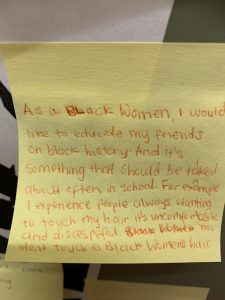 As a Black Women, I would
like to educate my friends
on black history. And it's
something that should be talked
about often in school. For example
I experience people always wanting
to touch my hair it's uncomfortable
and disrespectful. You
dont touch a Black Women's hair.